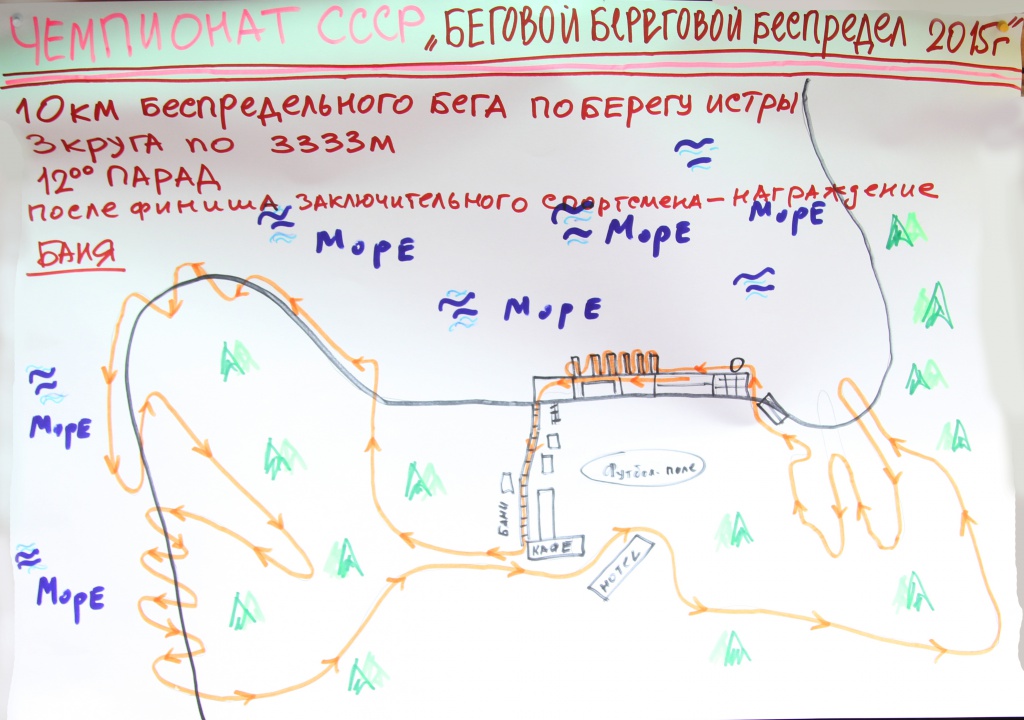 ЧЕМПИОНАТ СССР „БЕГОВОЙ БЕРЕГОВОЙ Беспредел 2015г"
10км Беспредельного БЕГА ПО БЕРЕГУ ИСТРЫ
3 круга по 3333м
12⁰⁰ ПАРАД
после финиша заключительного спортсмена – награждение
БАНЯ
МОРЕ
МОРЕ
МОРЕ
МОРЕ
МОРЕ
МОРЕ
Футбол. поле
БАНИ
КАФЕ
HOTEL